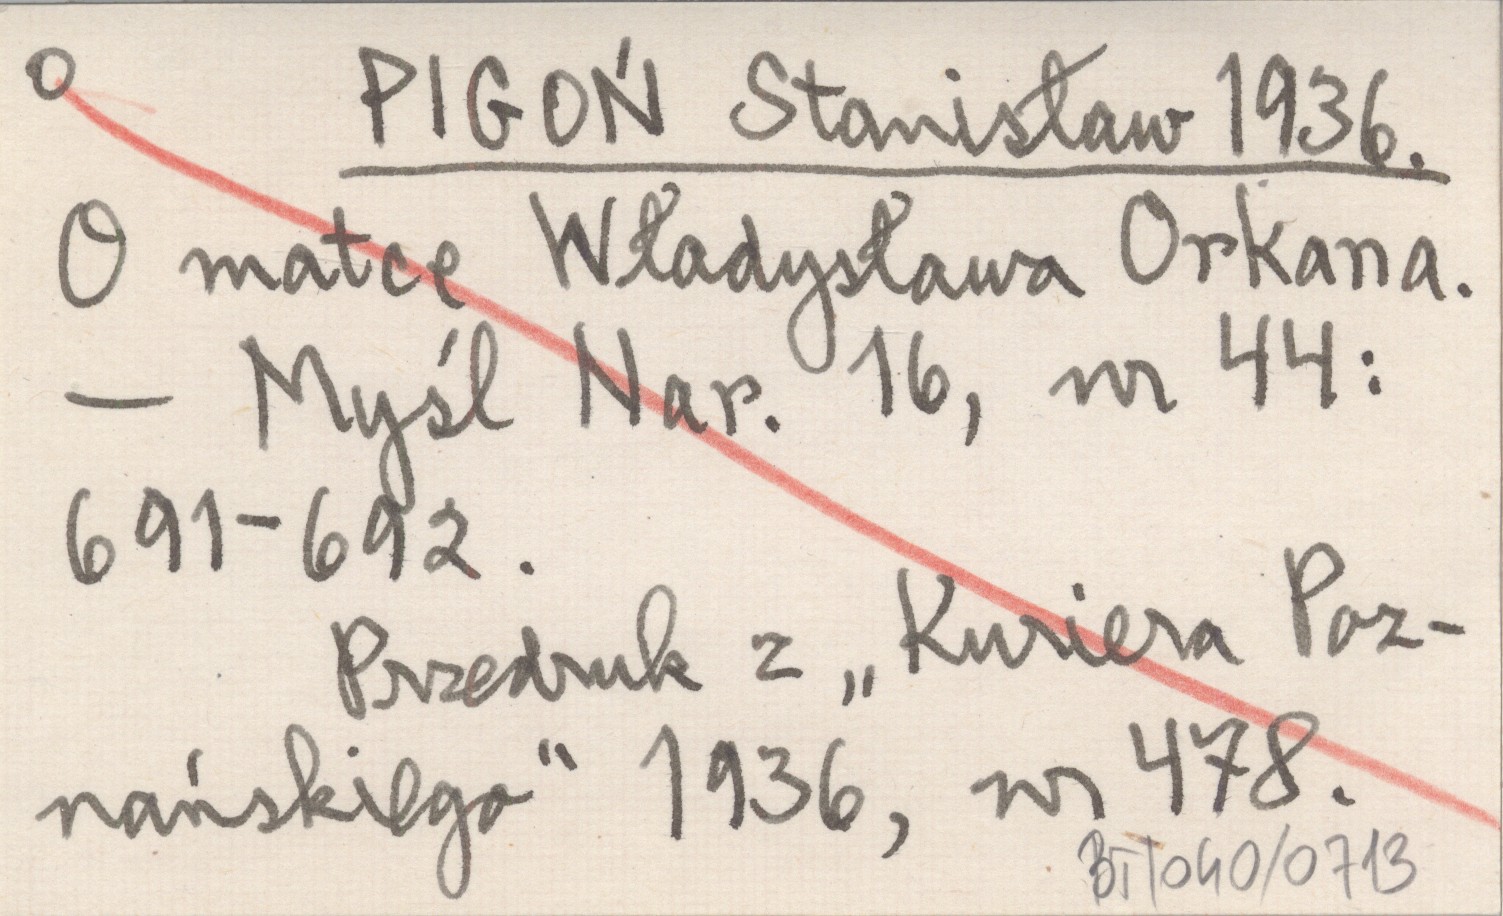 O PIGOŃ Stanisław 1936.
O matce Władysława Orkana.
— Myśl Nar. 16, nr 44:
691-692.
Przedruk z „Kuriera Poz-
nańskiego" 1936, nr 478.
BT/040/0713